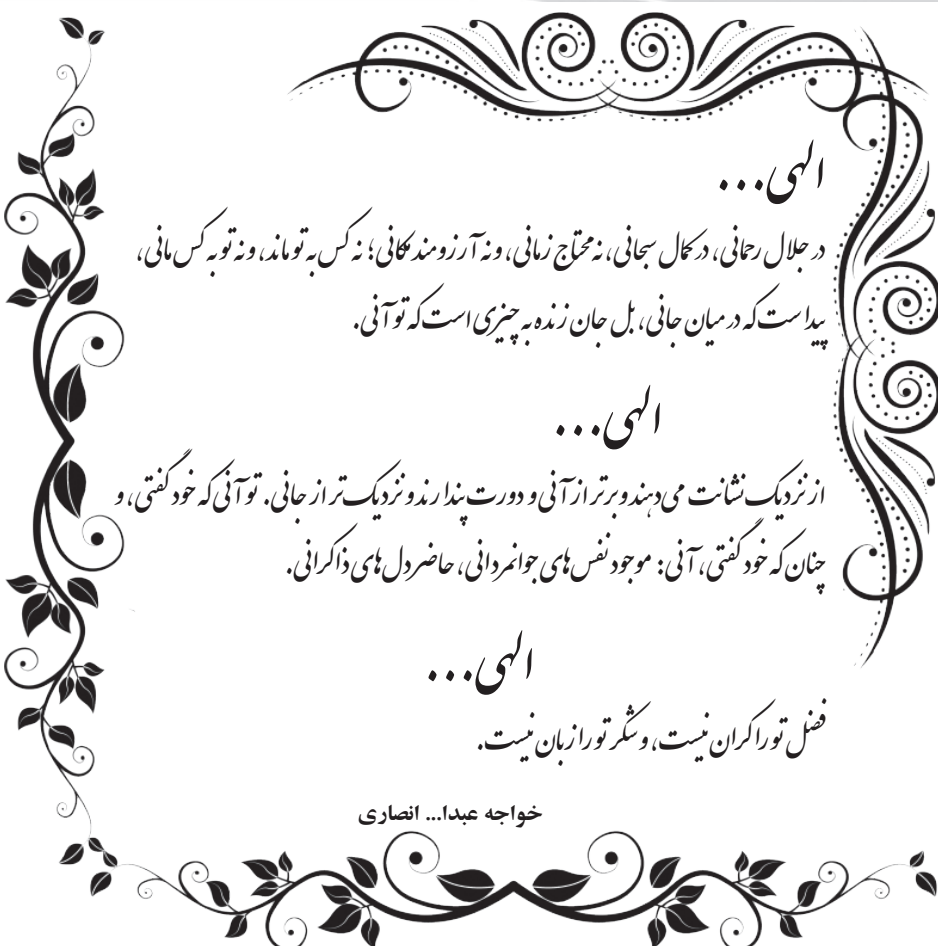 الهی...
در جلال رحمانی، در کمال سبحانی، نه محتاج زمانی، و نه آرزومند مکانی؛ نه کس به تو ماند، و نه تو به کس مانی،
پیداست که در میان جانی، بل جان زنده به چیزی است که تو آنی.
الهی...
از نزدیک نشانت می‌دهند و برتر از آنی و دورت پندارند و نزدیک‌تر از جانی. تو آنی که خود گفتی، و
چنان که خود گفتی، آنی: موجود نفس‌های جوانمردانی، حاضر دل‌های ذاکرانی.
الهی...
فضل تو را کران نیست، و شکر تو را زبان نیست.
خواجه عبدا... انصاری